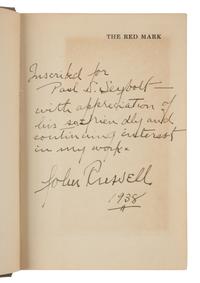 THE RED MARK
Inscribed for
Paul S. Seybolt —
with appreciation of
his friendly and
continuing interest
in my work.
John Russell
1938